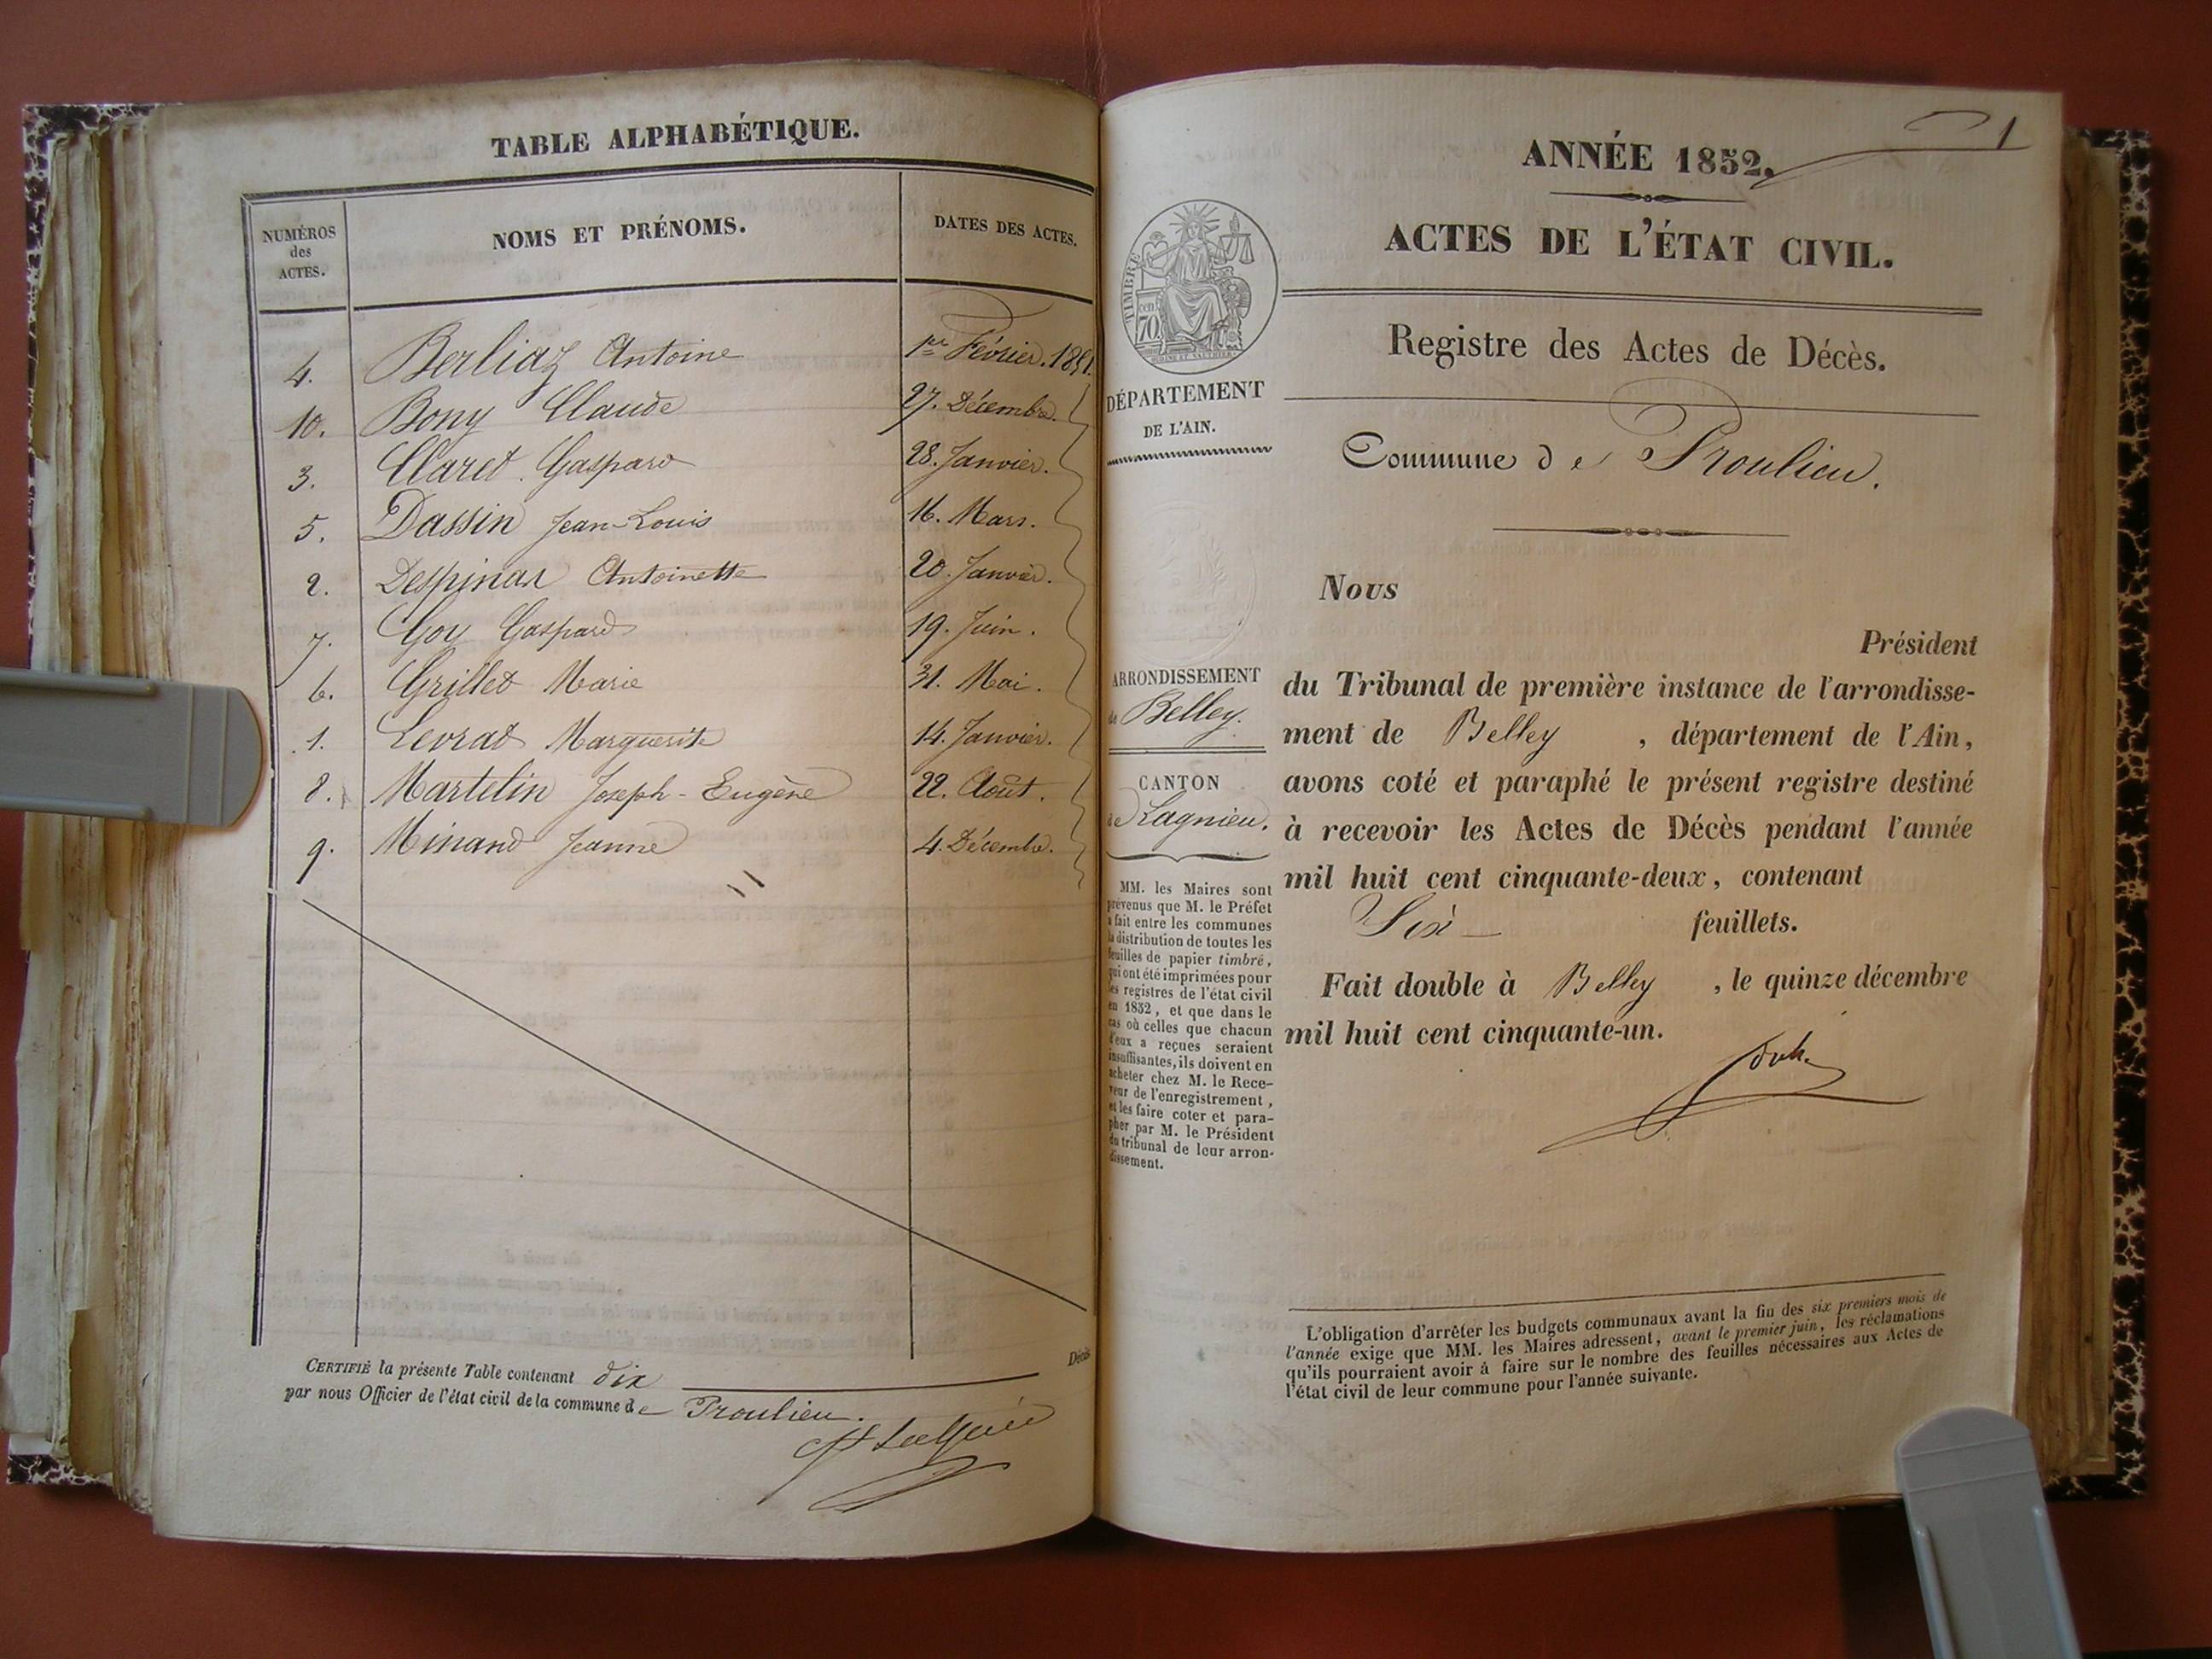 TABLE ALPHABÉTIQUE.
NUMÉROS des ACTES.
NOMS ET PRÉNOMS.
DATES DES ACTES.
4. Berliaz Antoine 1er Février. 1851.
10. Bony Claude 27. Décembre.
3. Claret. Gaspard 28. Janvier.
5. Dassin Jean-Louis 16. Mars.
2. Despinas Antoinette 20. Janvier.
7. Goy Gaspard 19. Juin.
6. Grillet Marie 31. Mai.
1. Levrat Marguerite 14. Janvier.
8. Martelin Joseph-Eugène 22. Août.
9. Minand Jeanne 4. Décembre.
CERTIFIÉ la présente Table contenant dix Décès
par nous Officier de l'état civil de la commune de Proulieu.
1
ANNÉE 1852.
ACTES DE L'ÉTAT CIVIL.
Registre des Actes de Décès.
Commune de Proulieu.
TIMBRE
70.
DÉPARTEMENT
DE L'AIN.
ARRONDISSEMENT
de Belley.
CANTON
de Lagnieu.
MM. les Maires sont
prévenus que M. le Préfet
a fait entre les communes
la distribution de toutes les
feuilles de papier timbré,
qui ont été imprimées pour
les registres de l'état civil
en 1852, et que dans le
cas où celles que chacun
d'eux a reçues seraient
insuffisantes, ils doivent en
acheter chez M. le Rece-
veur de l'enregistrement,
et les faire coter et para-
pher par M. le Président
du tribunal de leur arron-
dissement.
Nous
Président
du Tribunal de première instance de l'arrondisse-
ment de Belley, département de l'Ain,
avons coté et paraphé le présent registre destiné
à recevoir les Actes de Décès pendant l'année
mil huit cent cinquante-deux, contenant
Six feuillets.
Fait double à Belley, le quinze décembre
mil huit cent cinquante-un.
L'obligation d'arrêter les budgets communaux avant la fin des six premiers mois de
l'année exige que MM. les Maires adressent, avant le premier juin, les réclamations
qu'ils pourraient avoir à faire sur le nombre des feuilles nécessaires aux Actes de
l'état civil de leur commune pour l'année suivante.